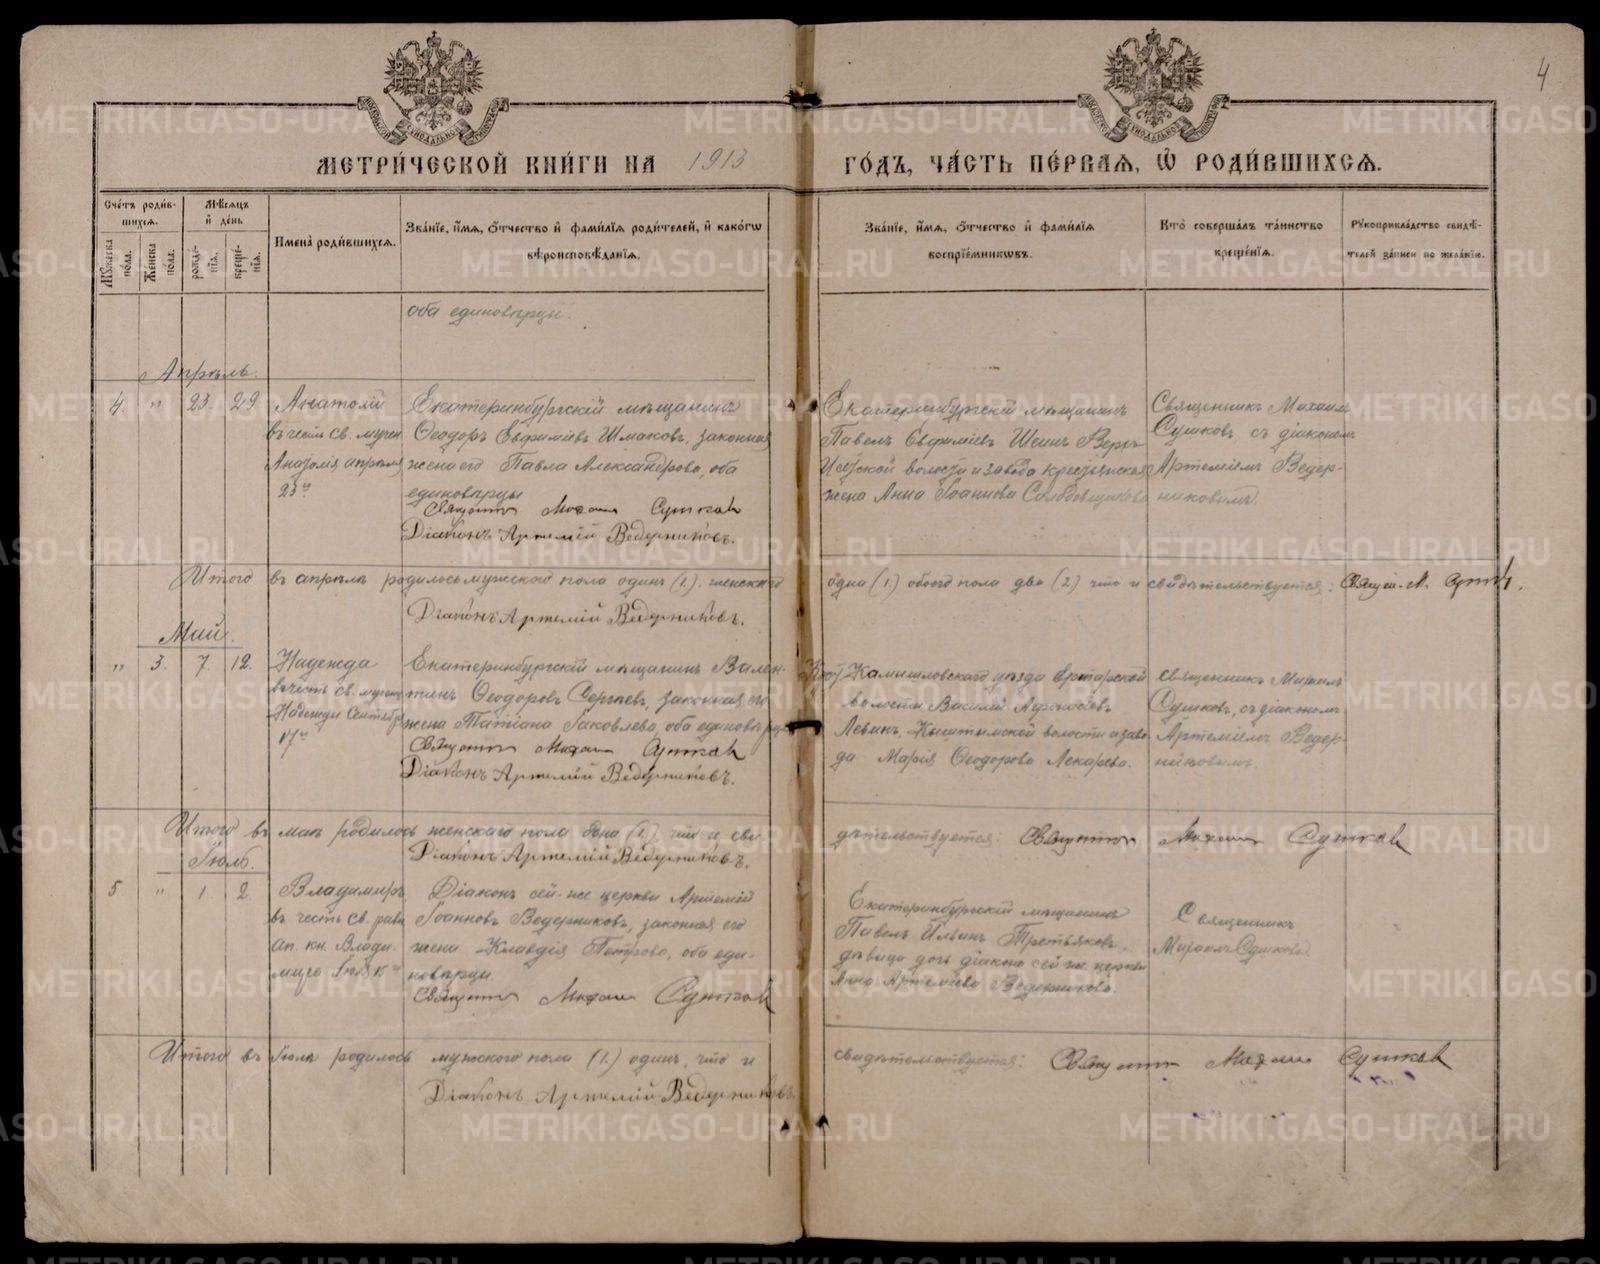 4
МЕТРИ́ЧЕСКОЙ КНИ́ГИ НА 1913 ГО́ДЪ, ЧА́СТЬ ПЕ́РВАЯ, Ѿ РОДИ́ВШИХСЯ.
Сче́тъ роди́в-
шихся.
Мꙋ́жеска по́ла.
Же́нска по́ла.
Мѣ́сяцъ
и҆ де́нь
рожде́-
нїя.
креще́-
нїя.
Имена̀ роди́вшихся.
Зва́нїе, и҆́мя, ѻ҆́тчество и҆ фами́лїя роди́телей, и҆ како́гѡ
вѣроисповѣ́данїя.
Зва́нїе, и҆́мя, ѻ҆́тчество и҆ фами́лїя
воспрїе́мниковъ.
Кто̀ соверша́лъ та́инство
креще́нїя.
Рꙋкоприкла́дство свидѣ́-
телей за́писи по жела́нїю.
оба единовѣрцы.
Апрѣль.
4. " 23. 29
Анатолій
въ честь св. мучен.
Анатолія апрѣля
23го
Екатеринбургскій мѣщанинъ
Ѳеодоръ Евфиміевъ Шмаковъ, законная
жена его Павла Александрова, оба
единовѣрцы
Священникъ Михаилъ Сушковъ
Діаконъ Артемій Ведерниковъ.
Екатеринбургскій мѣщанинъ
Павелъ Евфиміевъ Верхъ-
Исетской волости и завода крестьянская
жена Анна Іоаннова
Священникъ Михаилъ
Сушковъ, съ діакономъ
Артеміемъ Ведер-
никовымъ.
Итого въ апрѣлѣ родилось мужского пола одинъ (1.), женскаго одна (1.) обоего пола два (2) что и свидѣтельствуется: Священ. М. Сушковъ.
Діаконъ Артемій Ведерниковъ.
Май.
" 3. 7. 12.
Надежда
въ честь св. мучен.
Надежды Сентября
17го
Екатеринбургскій мѣщанинъ Вален-
тинъ Ѳеодоровъ Сергѣевъ, законная его
жена Татіана Іаковлева, оба единовѣрцы
Священникъ Михаилъ Сушковъ
Діаконъ Артемій Ведерниковъ.
Камышловскаго уѣзда
волости Василій Аѳанасіевъ
Левинъ, Кыштымской волости и заво-
да Марія Ѳеодорова Лекарева.
священникъ Михаилъ
Сушковъ, съ діакономъ
Артеміемъ Ведер-
никовымъ.
Итого въ маѣ родилось женскаго пола одна (1.) что и сви-
дѣтельствуется: Священникъ Михаилъ Сушковъ
Діаконъ Артемій Ведерниковъ.
Іюль.
5 " 1. 2
Владимиръ
въ честь св. равн.
ап. кн. Влади-
мира Іюля
Діаконъ сей-же церкви Артемій
Іоанновъ Ведерниковъ, законная его
жена Клавдія Петрова, оба еди-
новѣрцы
Священникъ Михаилъ Сушковъ
Екатеринбургскій мѣщанинъ
Павелъ Ильинъ Третьяковъ,
дѣвица дочь діакона сей же церкви
Анна Артеміева Ведерникова.
Священникъ
Михаилъ Сушковъ
Итого въ Іюлѣ родилось мужского пола (1.) одинъ, что и
свидѣтельствуется: Священникъ Михаилъ Сушковъ
Діаконъ Артемій Ведерниковъ.
METRIKI.GASO-URAL.RU